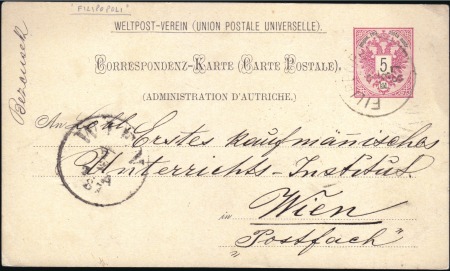 "FILIPOPOLI"
WELTPOST-VEREIN (UNION POSTALE UNIVERSELLE).
CORRESPONDENZ-KARTE (CARTE POSTALE),
5
(ADMINISTRATION D'AUTRICHE).
An
Erstes kaufmännisches
WIEN
Unterrichts-Institut
in Wien
"Postfach"